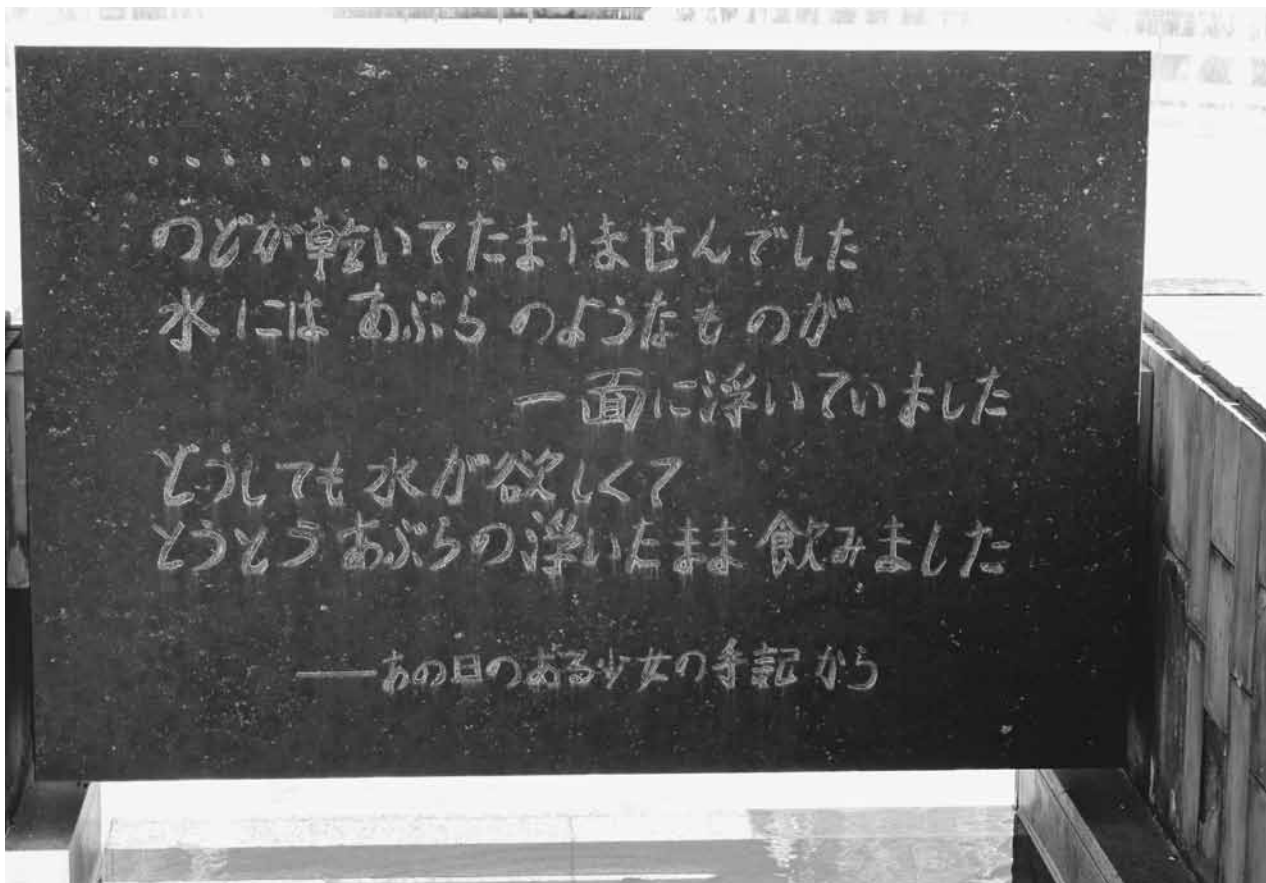 ・・・・・・・・・・・
のどが乾いてたまりませんでした
水には あぶら のようなものが
一面に浮いていました
どうしても水が欲しくて
とうとう あぶらの浮いたまま 飲みました
——あの日のある少女の手記から